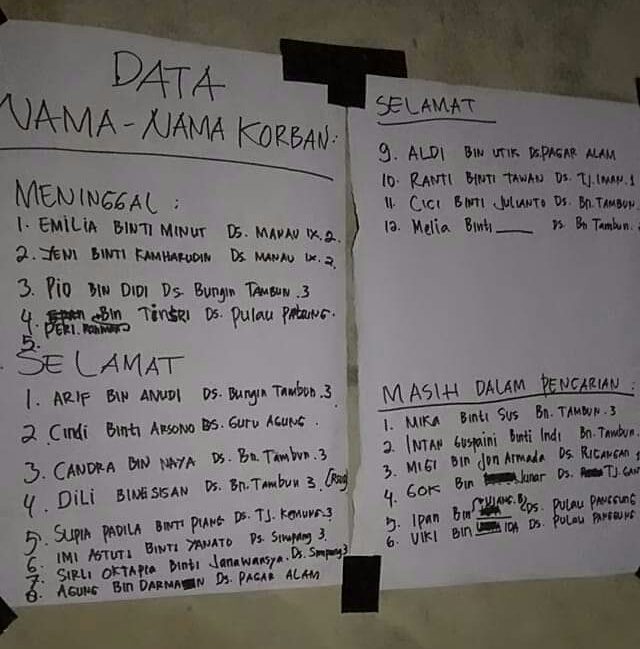 DATA
NAMA-NAMA KORBAN:
MENINGGAL :
1. EMILIA BINTI MINUT DS. MANAU IX.2.
2. YENI BINTI KAMHARUDIN DS MANAU IX.2
3. PiO BIN DIDI Ds. Bungin TAMBUN.3
4. Bin Tinsri Ds. Pulau
PERI.
5.
SELAMAT
1. ARIF BIN ANUDI Ds. Bungin Tambun.3
2 Cindi Binti ARSONO DS. GURU AGUNG.
3. CANDRA BIN NAYA Ds. Bn. Tambun.3
4. DiLi BIN SISAN Ds. Bn. Tambun 3.
5. SUPIA PADILA BINTI PIANG Ds. TJ. KEMUNG.3
6. IMI ASTUTI BINTI YANATO Ds. Simpang 3.
7. SIRLI OKTAPIA Binti Janawansya. Ds. Simpang 3
8. AGUNG Bin DARMAN Ds. PAGAR ALAM
SELAMAT
9. ALDI BIN UTIK DS. PAGAR ALAM
10. RANTI BINTI TAWAN Ds. TJ. IMAN.1
11. CICI BINTI JULIANTO Ds. Bn. TAMBUN.
12. Melia Binti ____ Ds Bn Tambun.
MASIH DALAM PENCARIAN:
1. MIKA Binti Sus Bn. TAMBUN.3
2. INTAN Guspaini Binti Indi Bn. Tambun.
3. MIGI Bin Jon Armada Ds. RICANGAN
4. GOK Bin Junar Ds. TJ.
5. Ipan Bin UJANG. Ds. PULAU PANGGUNG
6. VIKI BIN IDA Ds. PULAU PANGGUNG